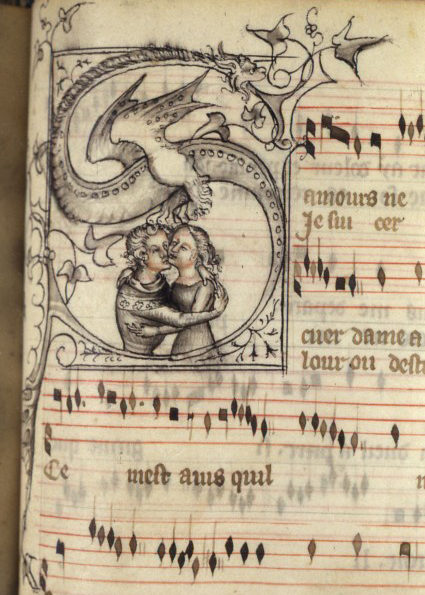 Samours ne
Je sui cer
cuer dame a
lour ou dest
Ce mest auis quil